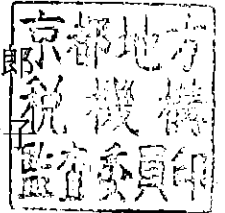 京都地方
税機構
監査委員印
郎
了